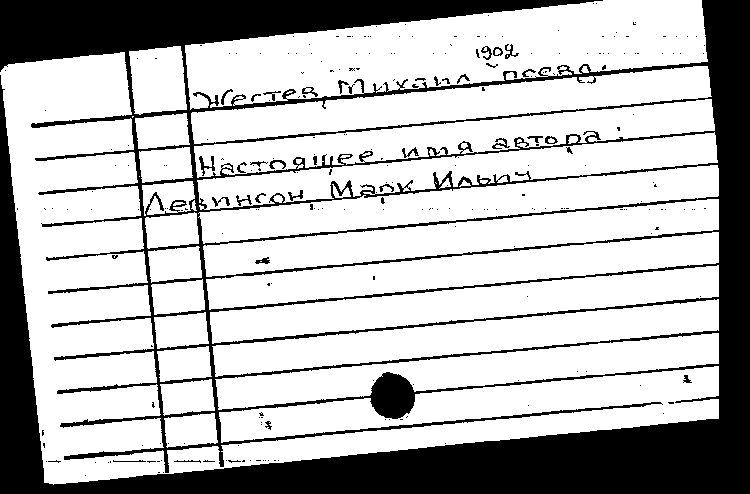 1902
Жестев, Михаил, псевд.
Настоящее имя автора:
Левинсон, Марк Ильич